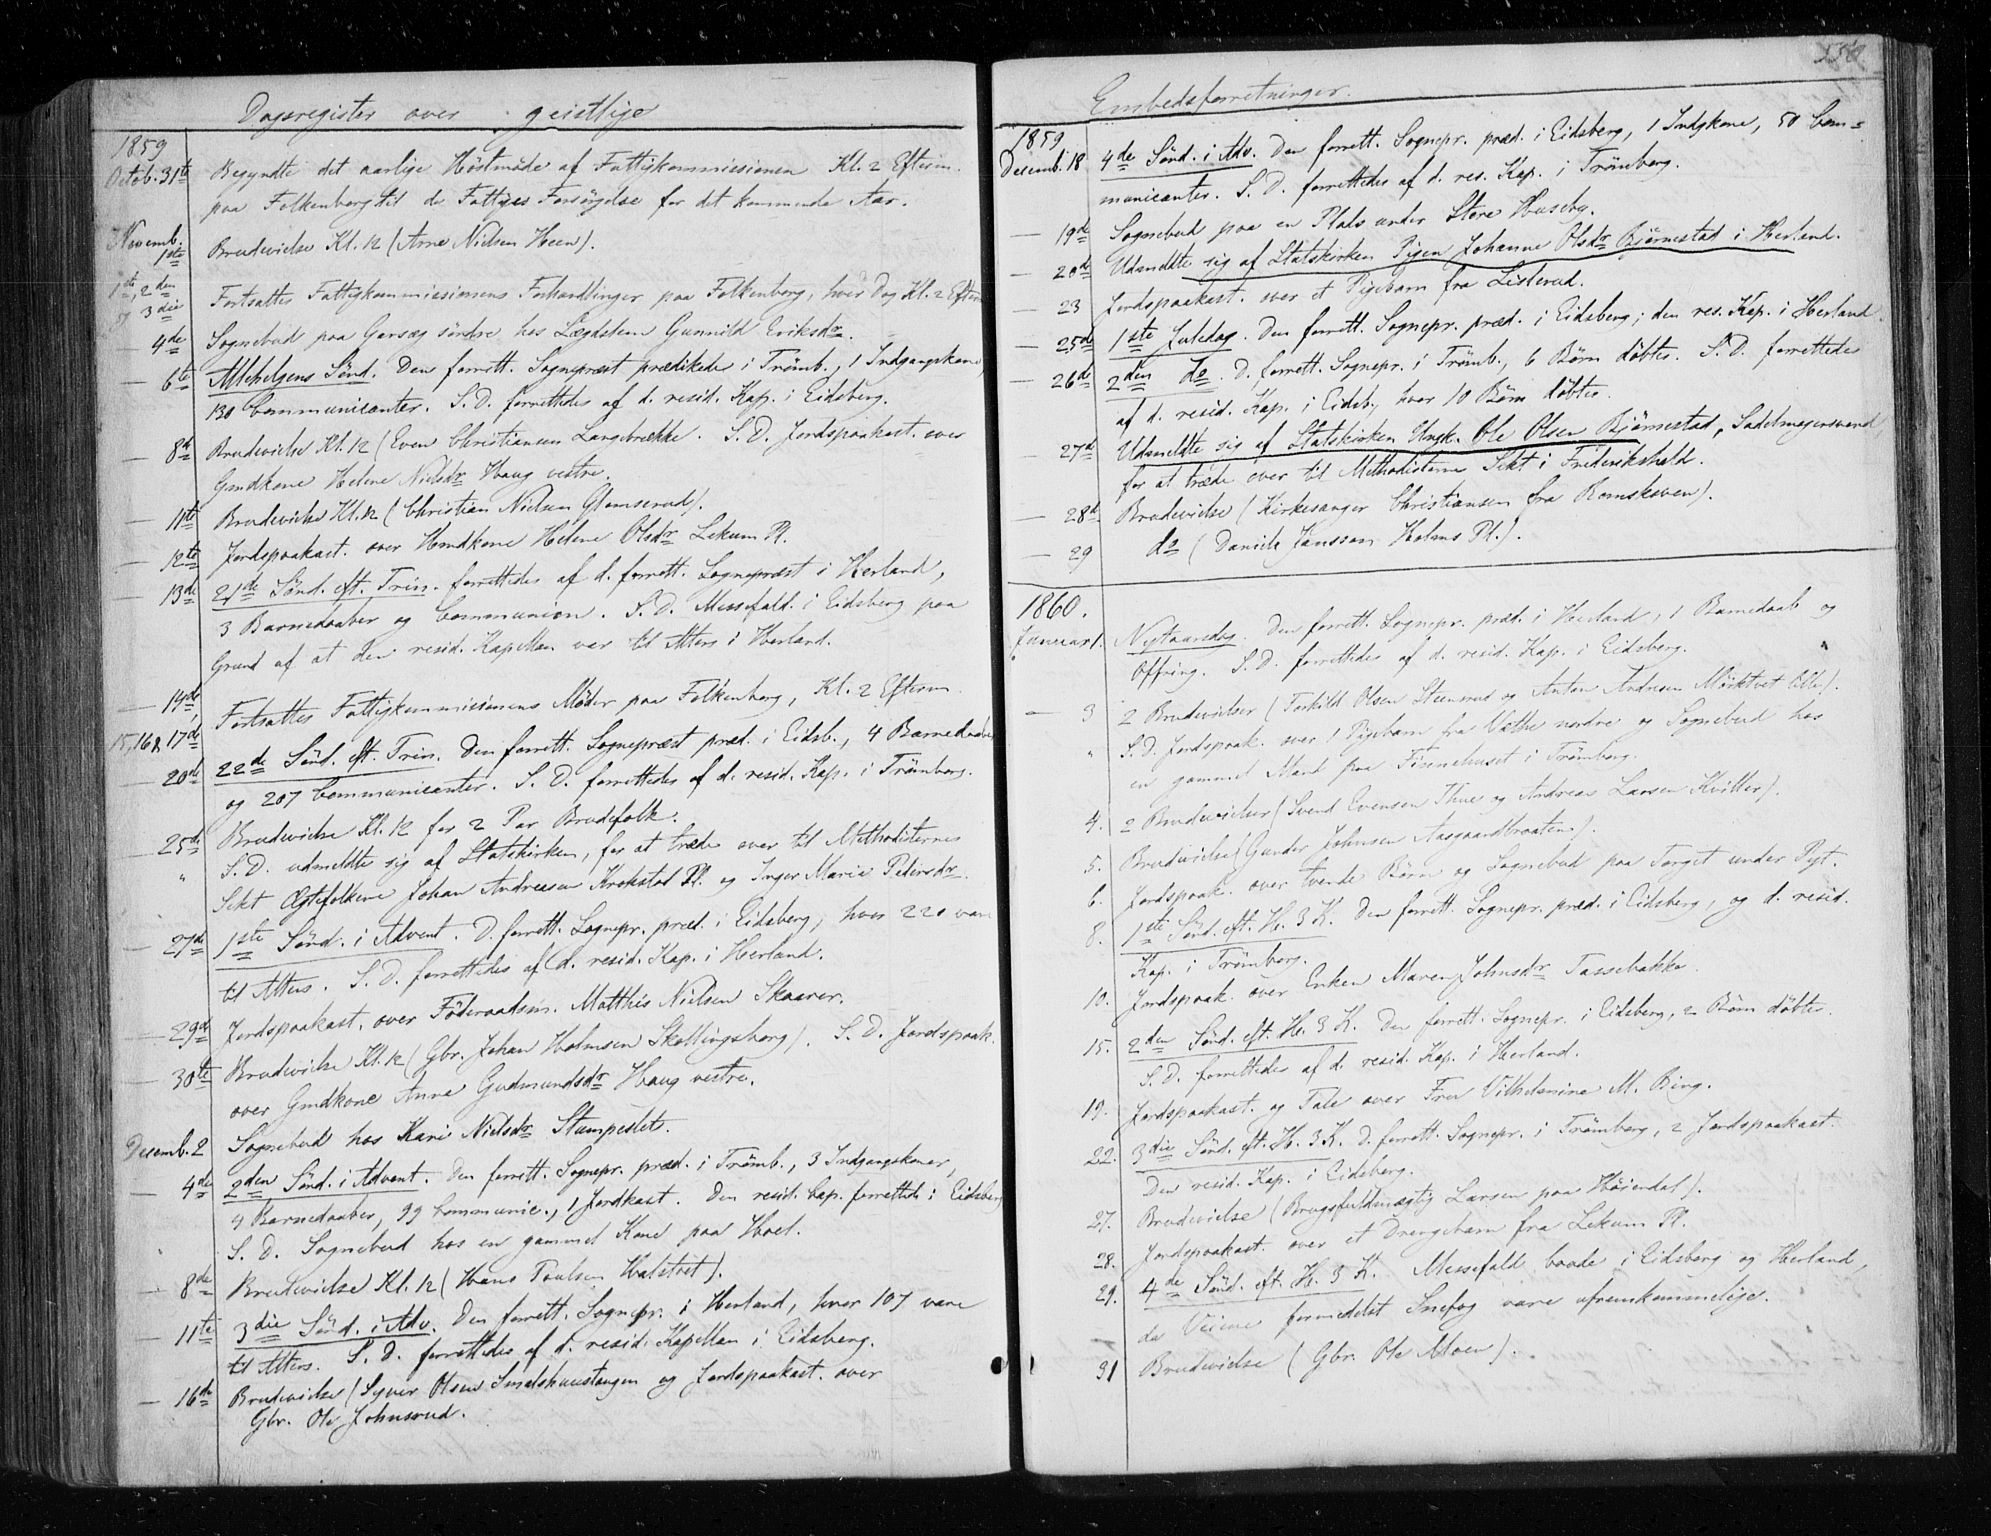 Dagsregister over geistlige
1859
Octob. 31te Begyndte det aarlige Høstmøde af Fattigkommissionen Kl. 2 Efterm.
paa Folkenborg til de Fattiges Forsørgelse for det kommende Aar.
Novemb. 1ste Brudevielse Kl. 12 (Arne Nielsen Heen).
1ste, 2den og 3die Fortsattes Fattigkommissionens Forhandlinger paa Folkenborg, hver Dag Kl. 2 Efterm
— 4de Sognebud paa Garseg søndre hos Lægdslem Gunnild Eriksdr.
— 6te Allehelgens Sønd. Den forrett. Sognepræst prædikede i Trömb., 1 Indgangskone,
130 Communicanter. S. D. forrettedes af d. resid. Kap. i Eidsberg.
— 8de Brudevielse Kl. 12 (Even Christiansen Langbrække. S. D. Jordspaakast. over
Gmdkone Helene Nielsdr Haug vestre.
— 11te Brudevielse Kl. 12 (Christian Nielsen Glomserud).
— 12te Jordspaakast. over Hmdkone Helene Olsdr Lekum Pl.
— 13de 21de Sönd. eft. Trin. forrettedes af d. forrett. Sognepræst i Herland,
3 Barnedaaber og Communion. S. D. Messefald. i Eidsberg paa
Grund af at den resid. Kapellan var til Alters i Herland.
— 14de, 15, 16 & 17de Fortsattes Fattigkommissionens Møder paa Folkenborg, Kl. 2 Efterm.
— 20de 22de Sönd. eft. Trin. Den forrett. Sognepræst præd. i Eidsb., 4 Barnedaaber
og 207 Communicanter. S. D. forrettedes af d. resid. Kap. i Trömborg.
— 25de Brudevielse Kl. 12 for 2 Par Brudefolk.
" S. D. udmeldte sig af Statskirken, for at træde over til Methodisternes
Sekt Ægtefolkene Johan Andreasen Krokstol Pl. og Inger Marie Pedersdr.
— 27de 1ste Sönd. i Advent. D. forrett. Sognepr. præd. i Eidsberg, hvor 220 vare
til Alters. S. D. forrettedes af d. resid. Kap. i Herland.
— 29de Jordspaakast. over Föderaadsm. Matthis Nielsen Skaarer.
— 30te Brudevielse Kl. 12 (Gbr. Johan Holmsen Skallingsborg). S. D. Jordspaak.
over Gmdkone Anne Gudmundsdr Haug vestre.
Decemb. 2 Sognebud hos Kari Nielsdr Stampeslet.
— 4de 2den Sönd. i Advent. Den forrett. Sognepr. præd. i Trömb., 3 Indgangskoner,
4 Barnedaaber, 99 Communic., 1 Jordkast. Den resid. Cap. forrettede i Eidsberg
S. D. Sognebud hos en gammel Kone paa Hoel.
— 8de Brudevielse Kl. 12 (Hans Poulsen Halstvet).
— 11te 3die Sönd. i Adv. Den forrett. Sognepr. i Herland, hvor 107 vare
til Alters. S. D. forrettedes af d. resid. Kapellan i Eidsberg.
— 16de Brudevielse (Syver Olsen Smelshuustangen og Jordspaakast. over
Gbr. Ole Johnsrud.
Embedsforretninger.
550
1859
Decemb. 18 4de Sönd. i Adv. Den forrett. Sognepr. præd. i Eidsberg, 1 Indgkone, 50 Com-
municanter. S. D. forrettedes af d. res. Kap. i Trömborg.
— 19de Sognebud paa en Plads under Store Huseby.
— 20de Udmeldte sig af Statskirken Pigen Johanne Olsdr Bjørnestad i Herland.
— 23 Jordspaakast. over et Pigebarn fra Listerud.
— 25de 1ste Juledag. Den forrett. Sognepr. præd. i Eidsberg; den res. Kap. i Herland.
— 26de 2den do. D. forrett. Sognepr. i Trömb., 6 Børn døbtes. S. D. forrettedes
af d. resid. Kap. i Eidsb., hvor 10 Børn døbtes.
— 27de Udmeldte sig af Statskirken Ungk. Ole Olsen Bjørnestad, Sadelmagersvend
for at træde over til Methodisterne Sekt i Frederikshald.
— 28de Brudevielse (Kirkesanger Christiansen fra Romskoven).
— 29 do (Daniel Jansson Holms Pl.).
1860.
Januar 1. Nytaarsdag. Den forrett. Sognepr. præd. i Herland, 1 Barnedaab og
Offring. S. D. forrettedes af d. resid. Kap. i Eidsberg.
— 3 2 Brudevielser (Torkild Olsen Steensrud og Anton Andresen Mørktvet Olle).
" S. D. Jordspaak. over 1 Pigebarn fra Vathe nordre og Sognebud hos
en gammel Mand paa Finnehuset i Trömborg.
4. 2 Brudevielser (Svend Evensen Thue og Andreas Larsen Kvitler).
5. Brudevielse (Gunder Johnsen Aasgaardbraaten).
6. Jordspaak. over tvende Børn og Sognebud paa Torget under Pyt.
8. 1ste Sönd. eft. H. 3 K. Den forrett. Sognepr. præd. i Eidsberg, og d. resid.
Kap. i Trömborg.
10. Jordspaak. over Enken Maren Johnsdr Tassebakke.
15. 2den Sönd. eft. H. 3 K. Den forrett. Sognepr. i Eidsberg, 2 Børn døbtes.
S. D. forrettedes af d. resid. Kap. i Herland.
19. Jordspaakast. og Tale over Fru Vilhelmine M. Bing.
22. 3die Sönd. eft. H. 3 K. D. forrett. Sognepr. i Trömborg, 2 Jordspaakast.
Den resid. Kap. i Eidsberg.
27. Brudevielse (Brugsfuldmægtig Larsen paa Høiendal).
28. Jordspaakast. over et Drengebarn fra Lekum Pl.
29. 4de Sönd. eft. H. 3 K. Messefald baade i Eidsberg og Herland,
da Veiene formedelst Snefog vare ufremkommelige.
31 Brudevielse (Gbr. Ole Moen).